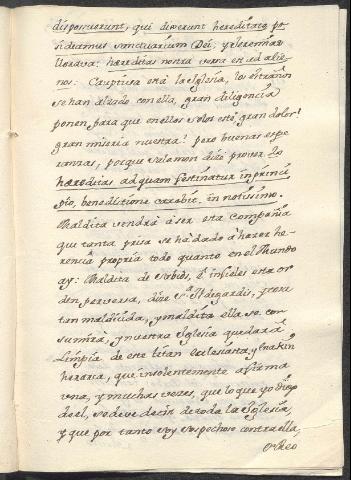 disposuerunt, qui dixerunt hereditate po
sideamus sanctuarium Dei; y Jeremias
llorava: haereditas nostra versa est ad alie
nos: Cauptiva està la Iglesia, los estraños
se han alzado con ella, gran diligencia
ponen para que en ellos solos estè, gran dolor!
gran miseria nuestra! pero buenas espe
ranzas, porque Salomon dixo prover. 20
haereditas ad quam festinatur in princi
pio, benedictione carebit, in novissimo.
Maldita vendrà à ser esta Compañia
que tanta prisa se hà dado à hazer he
rencia propria todo quanto en el Mundo
ay: Maldita de Sabios, d infieles esta or
den perversa, dixe Sta. Ildegardis, y cosa
tan maldicida, y maldita ella se con
sumirà, y nuestra Iglesia quedarà
limpia de este titan eclesiastico,
que insolentemente afirma
una, y muchas veces, que lo que yo digo
de el, se deve decir de toda la Iglesia,
y que por tanto soy sospechoso contra ella,